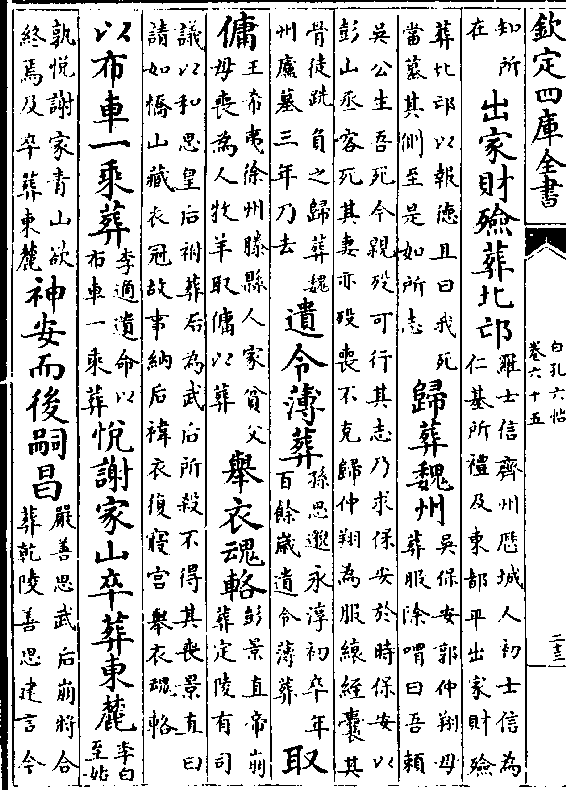 欽定四庫全書
白孔六帖
卷六十五
二十三
知所
在
出家財殮葬北邙
羅士信齊州歷城人初士信為
仁基所禮及東都平出家財殮
葬北邙以報德且曰我死
當墓其側至是如所志
歸葬魏州
吳保安郭仲翔母
葬服除喟曰吾賴
吳公生吾死今親歿可行其志乃求保安於時保安以
彭山丞客死其妻亦歿喪不克歸仲翔為服縗絰囊其
骨徒跣負之歸葬魏
州廬墓三年乃去
遺令薄葬
孫思邈永淳初卒年
百餘歲遺令薄葬
取
傭
王希夷徐州滕縣人家貧父
母喪為人牧羊取傭以葬
舉衣魂輅
彭景直帝崩
葬定陵有司
議以和思皇后祔葬后為武后所殺不得其喪景直曰
請如橋山藏衣冠故事納后褘衣復寢宮舉衣魂輅
以布車一乘葬
李適遺命以
布車一乘葬
悅謝家山卒葬東麓
李白
至姑
孰悅謝家青山欲
終焉及卒葬東麓
神安而後嗣昌
嚴善思武后崩將合
葬乾陵善思建言今